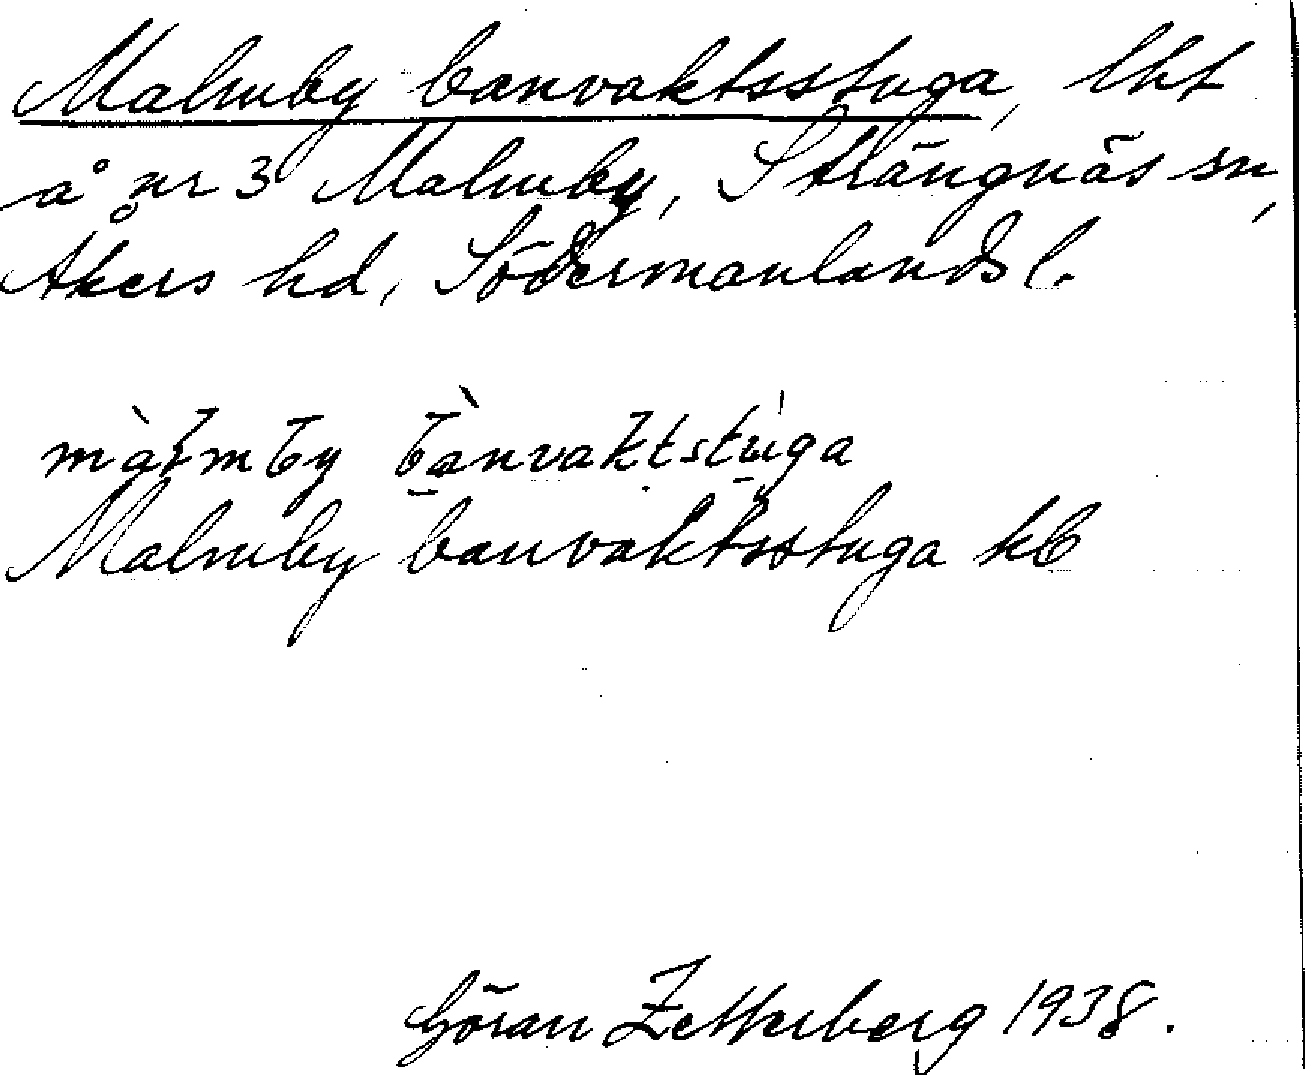 Malmby banvaktsstuga, lht
å nr 3 Malmby, Strängnäs sn,
Åkers hd, Södermanlands l.
màɫmby bànvaktstùga
Malmby banvaktsstuga kb
Göran Zetterberg 1938.